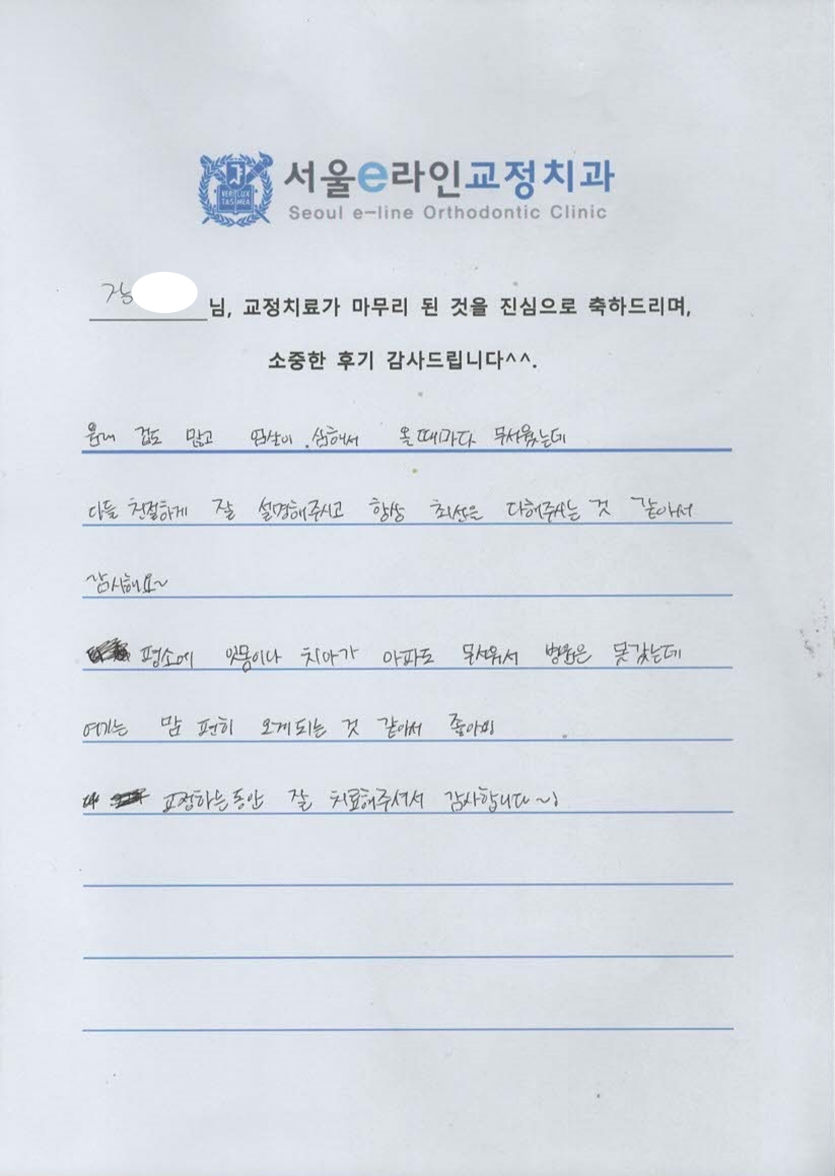 서울e라인교정치과
Seoul e-line Orthodontic Clinic
VERI LUX
TAS MEA
님, 교정치료가 마무리 된 것을 진심으로 축하드리며,
소중한 후기 감사드립니다^^.
원래 겁도 많고 엄살이 심해서 올때마다 무서웠는데
다들 친절하게 잘 설명해주시고 항상 최선을 다해주시는 것 같아서
감사해요~
평소에 잇몸이나 치아가 아파도 무서워서 병원은 못갔는데
여기는 맘 편히 오게되는 것 같아서 좋아요
교정하는동안 잘 치료해주셔서 감사합니다~!